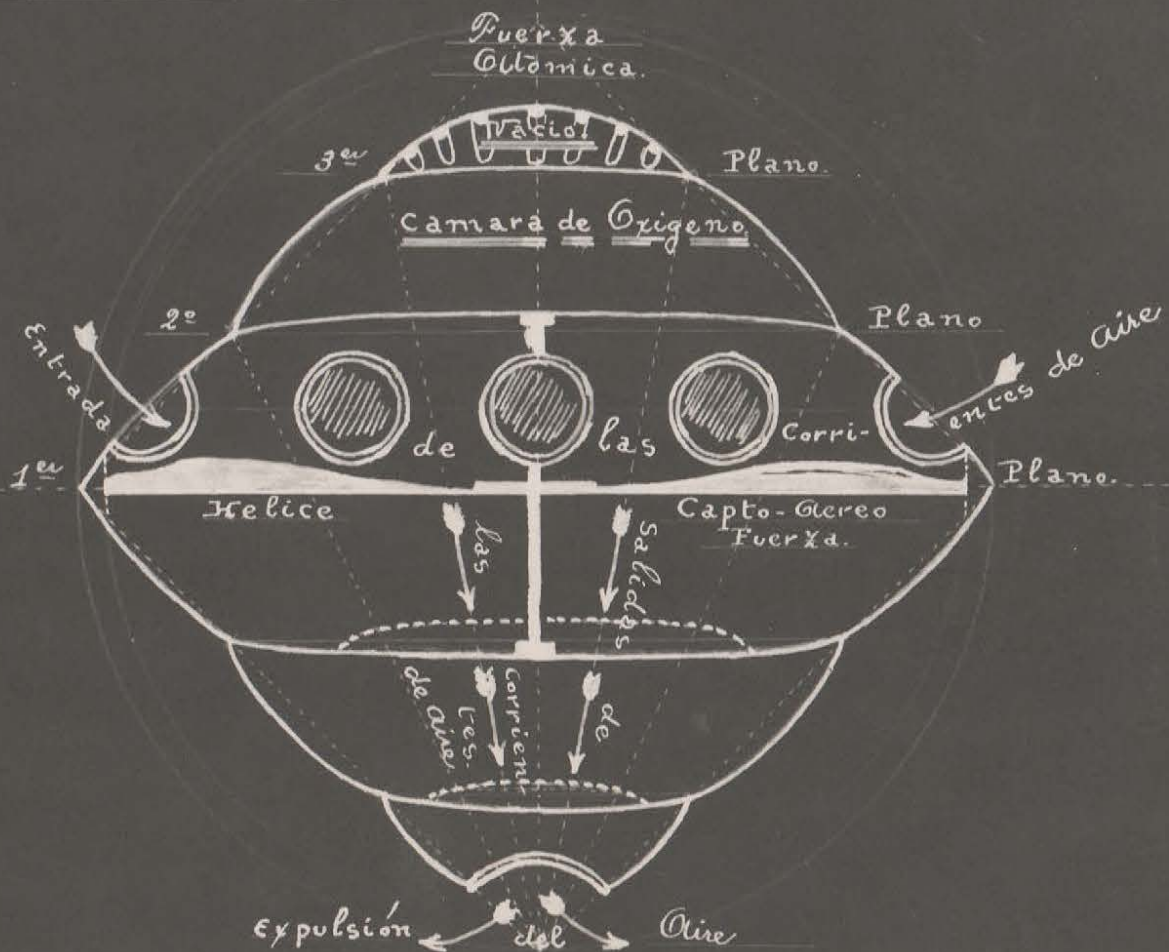 Fuerza
Atómica.
Vacio.
3er Plano.
Camara de Oxigeno
2º Plano
Entrada de las Corri-entes de aire
1er Plano.
Helice
Capto-Aereo
Fuerza.
las Salidas de
Corrien-
tes.
de aire
Expulsión del Aire